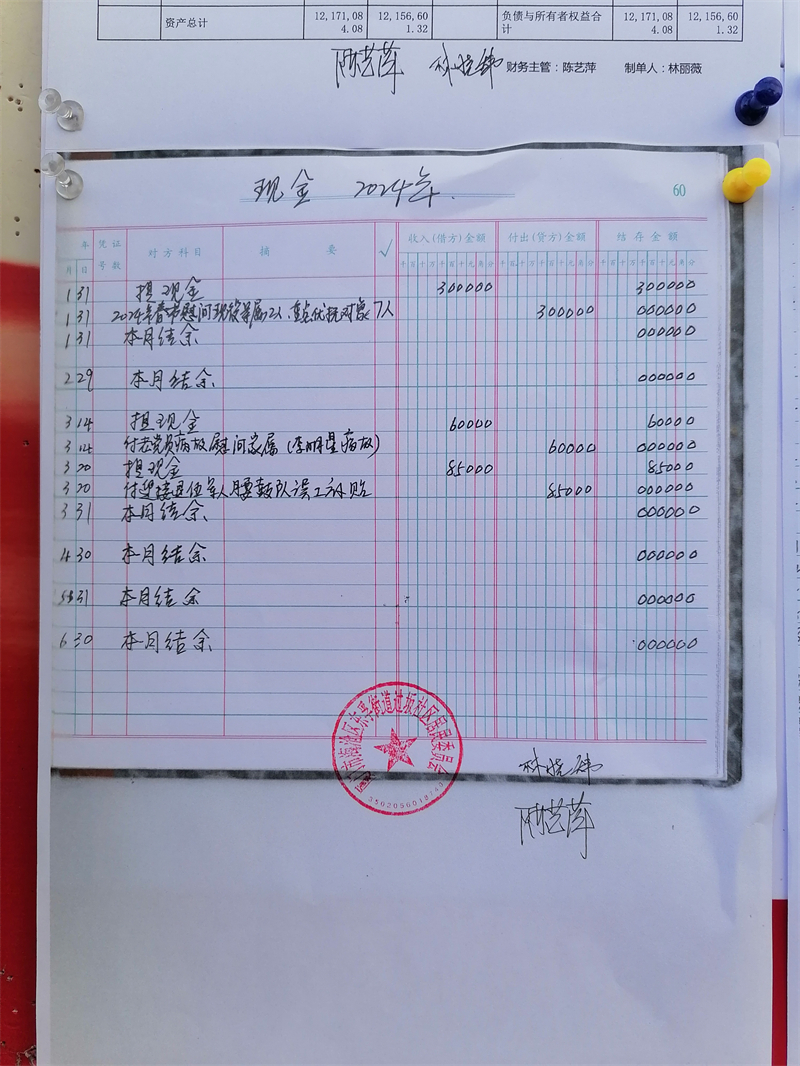 资产总计 12,171,084.08 12,156,601.32 负债与所有者权益合计 12,171,084.08 12,156,601.32
陈艺萍 林晓锦 财务主管：陈艺萍 制单人：林丽薇
现金 2024年.
60
年 凭证 对方科目 摘要 √ 收入(借方)金额 付出(贷方)金额 结存金额
月 日 号数 千百十万千百十元角分 千百十万千百十元角分 千百十万千百十元角分
1 31 提现金 300000 300000
1 31 2024年春节慰问现役军属2人、重点优抚对象7人 300000 000000
1 31 本月结余 000000
2 29 本月结余 000000
3 14 提现金 60000 60000
3 14 付老党员病故慰问家属(李明星病故) 60000 000000
3 20 提现金 85000 85000
3 20 付迎接退伍军人腰鼓队误工补贴 85000 000000
3 31 本月结余 000000
4 30 本月结余 000000
5 31 本月结余 000000
6 30 本月结余 000000
街道过坂社区居民委员会
林晓锦
陈艺萍